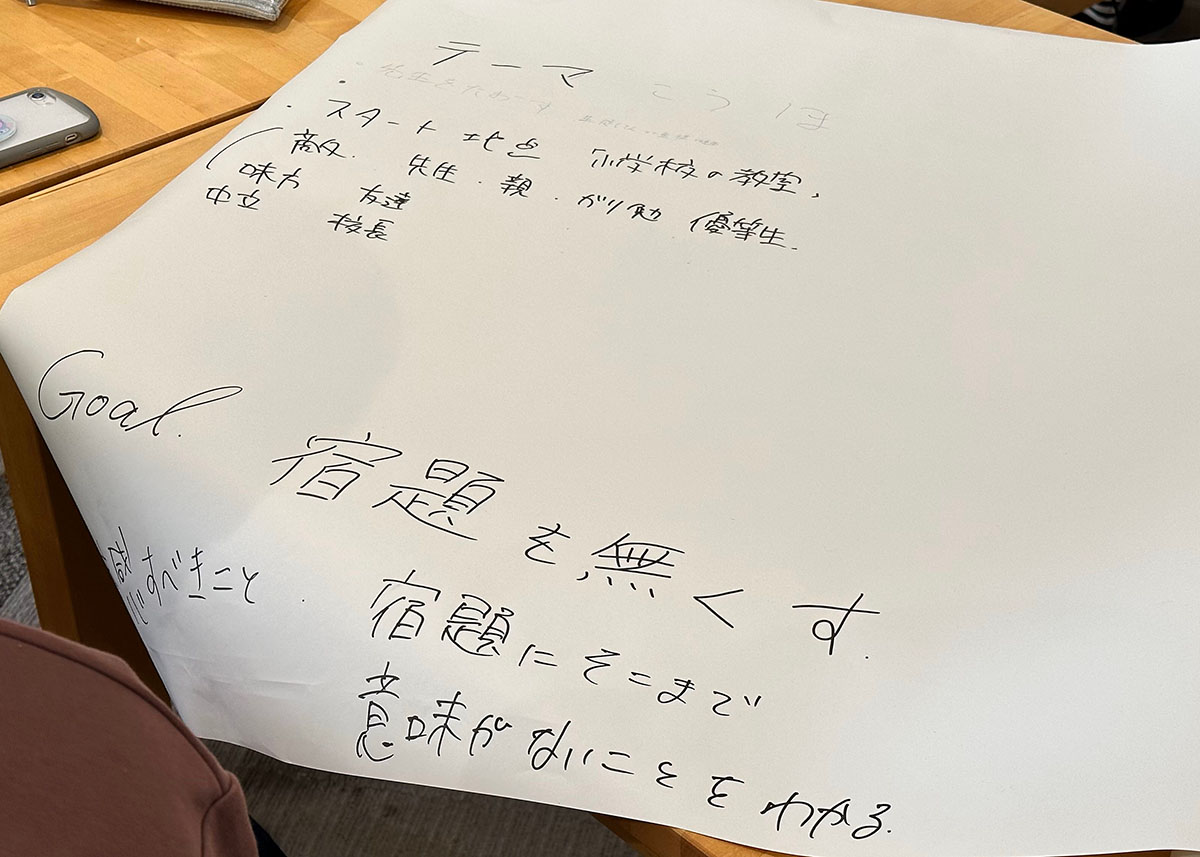 テーマ こうほ
・スタート地点 小学校の教室、
敵 先生・親・ガリ勉 優等生.
味方 友達
中立 校長
Goal.
宿題を無くす.
すべきこと
宿題にそこまで
意味がないことをわかる.